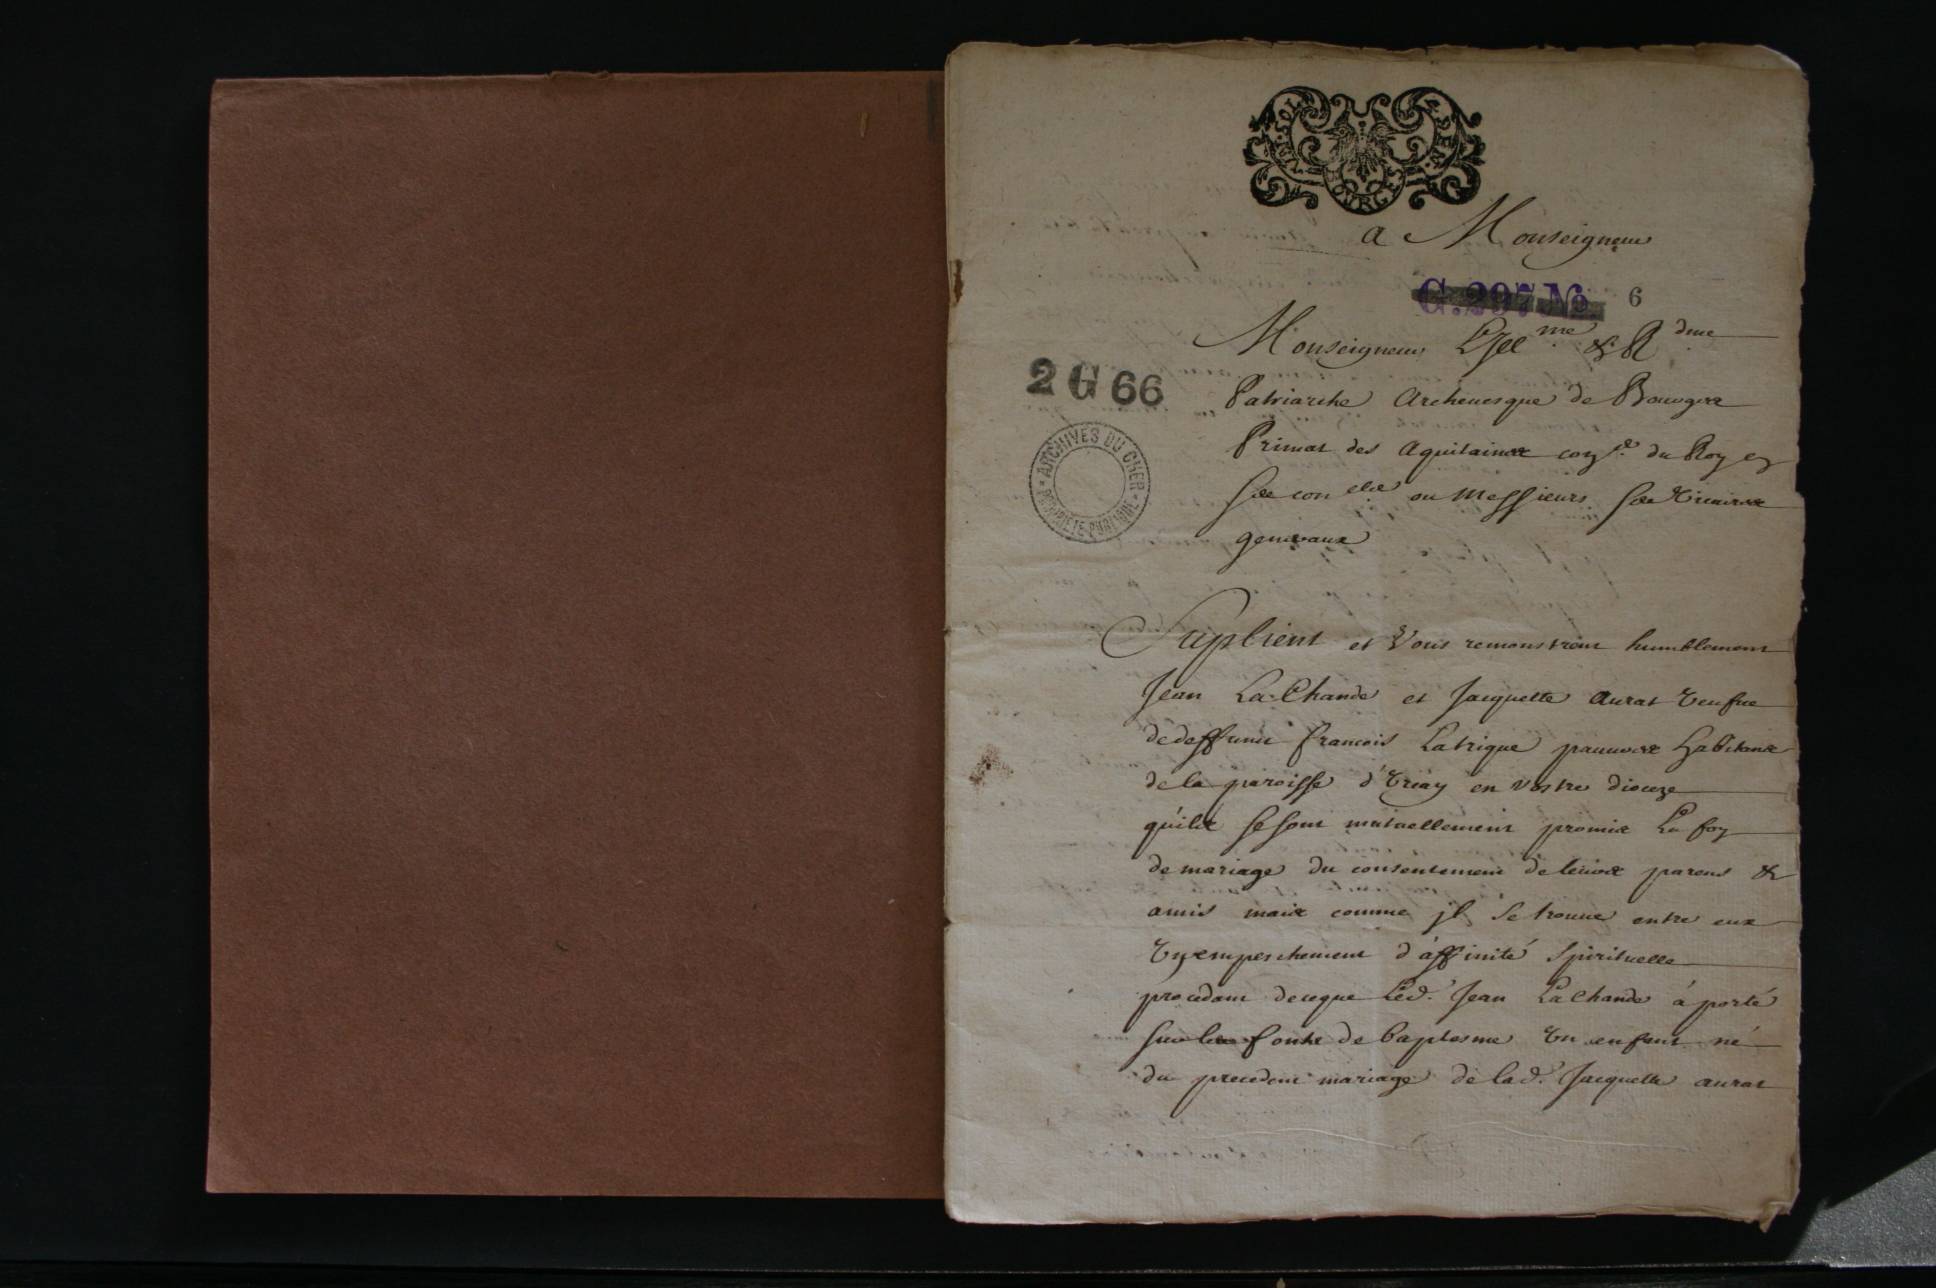 BOVRGES
a Monseigneur
G. 297 No 6
Monseigneur L'Jll me & R dme
2 G 66
Patriarche Archeuesque de Bourges
ARCHIVES DU CHER
PROPRIETE PUBLIQUE
Primat des Aquitaines con.er du Roy en
ses con elz ou Messieurs ses Vicaires
generaux
Suplient et Vous remonstrent humblement
Jean La Chaude et Jacquette Aurat Veufue
de deffunt francois Latrique pauures habitans
de la paroisse d'Vriay en vostre dioceze
quils se sont mutuellement promis La foy
de mariage du consentement de leurs parens &
amis mais comme jl se trouue entre eux
Vn empeschement d'affinité spirituelle
procedant de ceque Led. Jean La Chaude à porté
sur les fonts de baptesme Vn enfant né
du precedent mariage de lad. Jacquette aurat